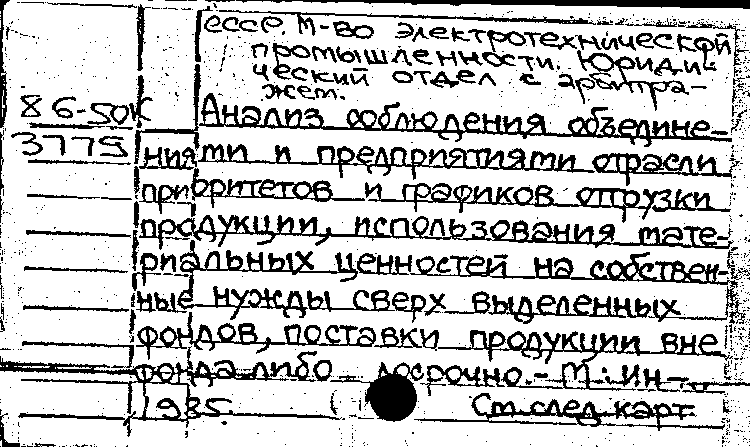 СССР. М-во электротехнической
промышленности. Юриди-
ческий отдел с арбитра-
жем.
86-50к
3775
Анализ соблюдения объедине-
ниями и предприятиями отрасли
приоритетов и графиков отгрузки
продукции, использования мате-
риальных ценностей на собствен-
ные нужды сверх выделенных
фондов, поставки продукции вне
фонда либо досрочно. - М.: Ин-
1985.
См. след. карт.